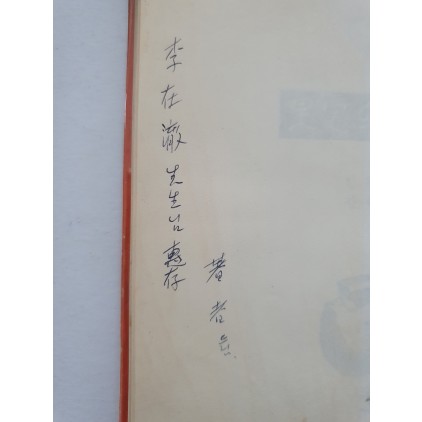 李在澈先生님 惠存
著者 드림